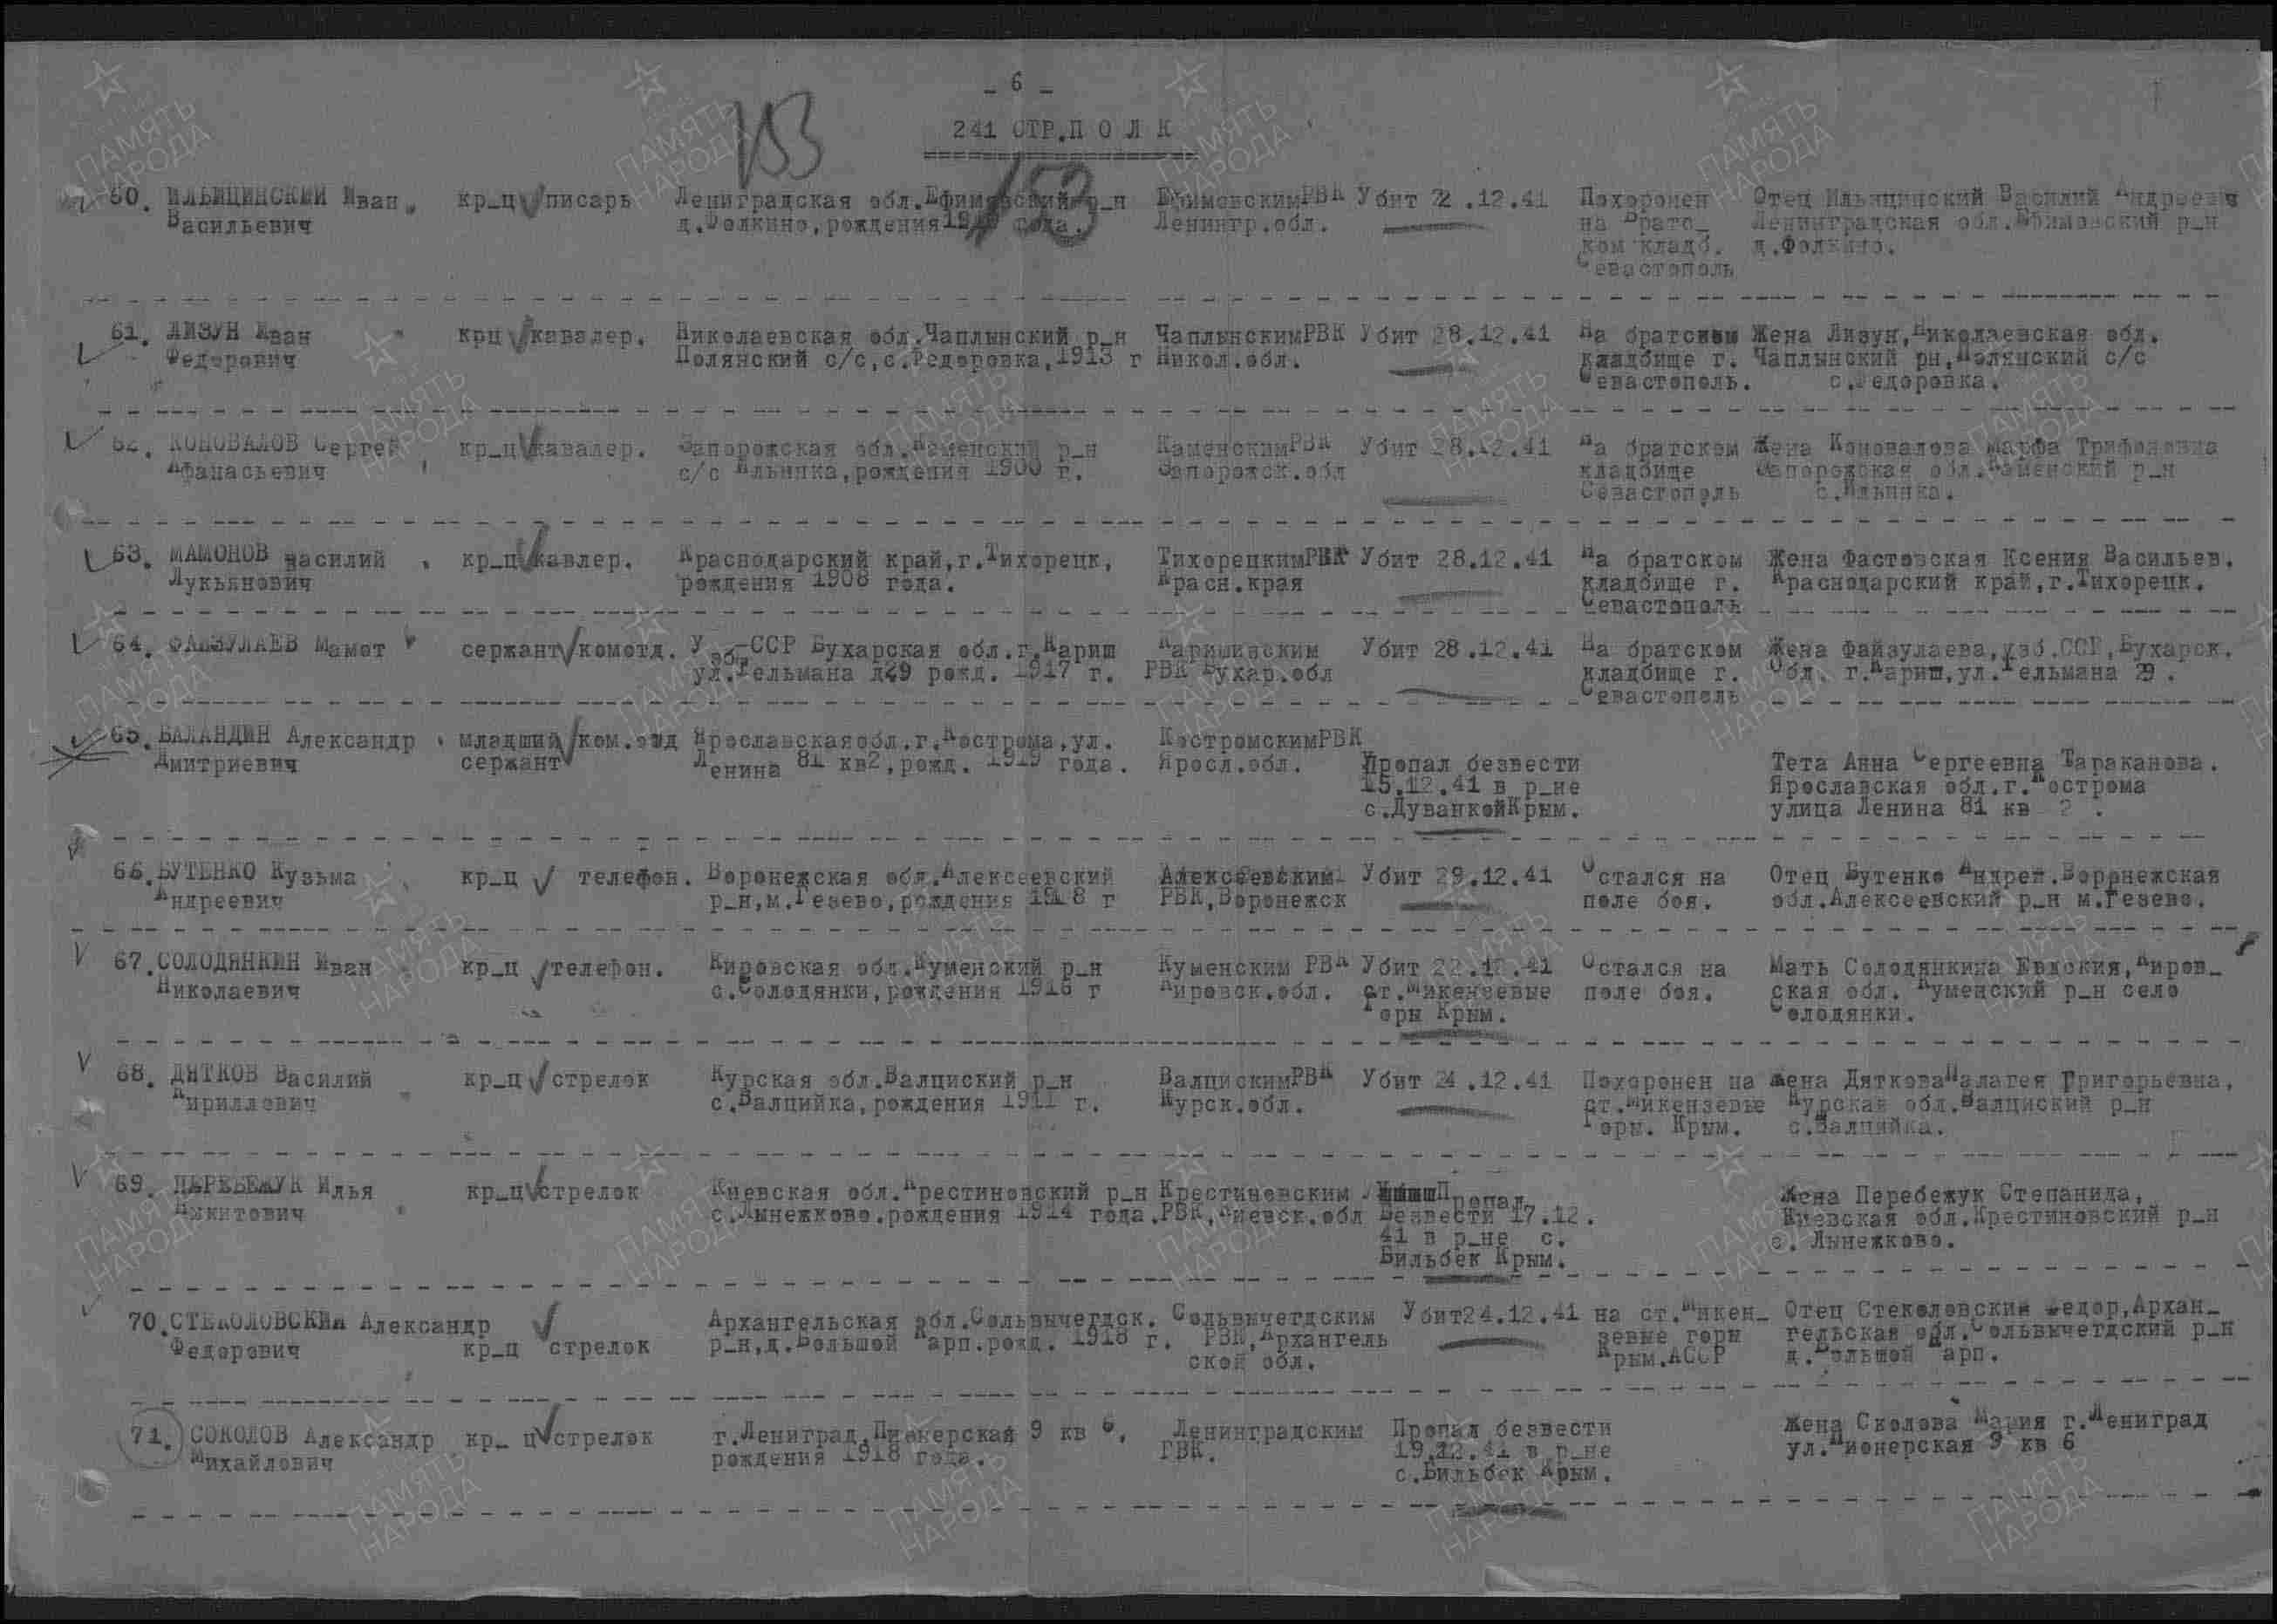 _ 6 _
153
241 СТР.П О Л К
153
60. ИЛЬИЦИНСКИЙ Иван кр_ц писарь Лениградская обл.Ефимовский р_н ЕфимовскимРВК Убит 22.12.41 Похоронен Отец Ильицинский Василий Андреевич
Васильевич д.Фолкино,рождения года. Ленингр.обл. на Братс_ Ленинградская обл.Ефимовский р_н
ком кладб. д.Фолкино.
Севастополь
61. ЛИЗУН Иван крц кавалер. Николаевская обл.Чаплынский р_н ЧаплынскимРВК Убит 28.12.41 На братском Жена Лизун,Николаевская обл.
Федорович Полянский с/с,с.Федоровка,1913 г Никол.обл. кладбище г. Чаплынский рн,Полянский с/с
Севастополь. с.Федоровка.
62. КОНОВАЛОВ Сергей кр_ц кавалер. Запорожская обл.Каменский р_н КаменскимРВК Убит 28.12.41 На братском Жена Коновалова Марфа Трифоновна
Афанасьевич с/с Ильинка,рождения 1900 г. Запорожск.обл кладбище Запорожская обл.Каменский р_н
Севастополь с.Ильинка.
63. МАМОНОВ Василий кр_ц кавлер. Краснодарский край,г.Тихорецк, ТихорецкимРВК Убит 28.12.41 На братском Жена Фастовская Ксения Васильев.
Лукьянович рождения 1908 года. Красн.края кладбище г. Краснодарский край,г.Тихорецк.
Севастополь
64. ФАЙЗУЛАЕВ Мамот сержант комотд. Узб-ССР Бухарская обл.г.Кариш Каришинским Убит 28.12.41 На братском Жена Файзулаева,узб.ССР,Бухарск.
ул.Тельмана д29 рожд. 1917 г. РВК Бухар.обл кладбище г. Обл. г.Кариш,ул.Тельмана 29.
Севастополь
65. БАЛАНДИН Александр младший ком.отд Ярославскаяобл.г.Кострома,ул. КостромскимРВК
Дмитриевич сержант Ленина 81 кв2,рожд. 1919 года. Яросл.обл. Пропал безвести Тета Анна Сергеевна Тараканова.
15.12.41 в р_не Ярославская обл.г.Кострома
с.ДуванкойКрым. улица Ленина 81 кв 2 .
66.БУТЕНКО Кузьма кр_ц телефон. Воронежская обл.Алексеевский Алексеевским Убит 29.12.41 Остался на Отец Бутенко Андрей.Воронежская
Андреевич р_н,м.Гезево,рождения 1918 г РВК,Воронежск поле боя. обл.Алексеевский р_н м.Гезево.
67.СОЛОДЯНКИН Иван кр_ц телефон. Кировская обл.Куменский р_н Куменским РВК Убит 22.12.41 Остался на Мать Солодянкина Евдокия,Киров_
Николаевич с.Солодянки,рождения 1918 г Кировск.обл. ст.Микензевые поле боя. ская обл. Куменский р_н село
Горы Крым. Солодянки.
68. ДЯТКОВ Василий кр_ц стрелок Курская обл.Валциский р_н ВалцискимРВК Убит 24.12.41 Похоронен на Жена ДятковаПалагея Григорьевна,
Кириллович с.Валцийка,рождения 1911 г. Курск.обл. ст.Микензевые Курская обл.Валциский р_н
Горы. Крым. с.Валцийка.
69. ПЕРЕБЕЖУК Илья кр_ц стрелок Киевская обл.Крестиновский р_н Крестиновским Пропал Жена Перебежук Степанида,
Никитович с.Лынежково.рождения 1914 года.РВК,Киевск.обл Безвести 17.12. Киевская обл.Крестиновский р_н
41 в р_не с. с. Лынежково.
Бильбек Крым.
70.СТЕКОЛОВСКИЙ Александр Архангельская обл.Сольвычегдск. Сольвычегдским Убит24.12.41 на ст.Микен_ Отец Стеколовский Федор,Архан_
Федорович кр_ц стрелок р_н,д.Большой Карп.рожд. 1918 г. РВК,Архангель зевые горы гельская обл.Сольвычегдский р_н
ской обл. Крым.АССР д.Большой Карп.
71. СОКОЛОВ Александр кр_ ц стрелок г.Лениград,Пионерская 9 кв 6, Ленинградским Пропал безвести Жена Сколова Мария г.Лениград
Михайлович рождения 1918 года. ГВК. 19.12.41 в р_не ул.Пионерская 9 кв 6
с.Бильбек Крым.